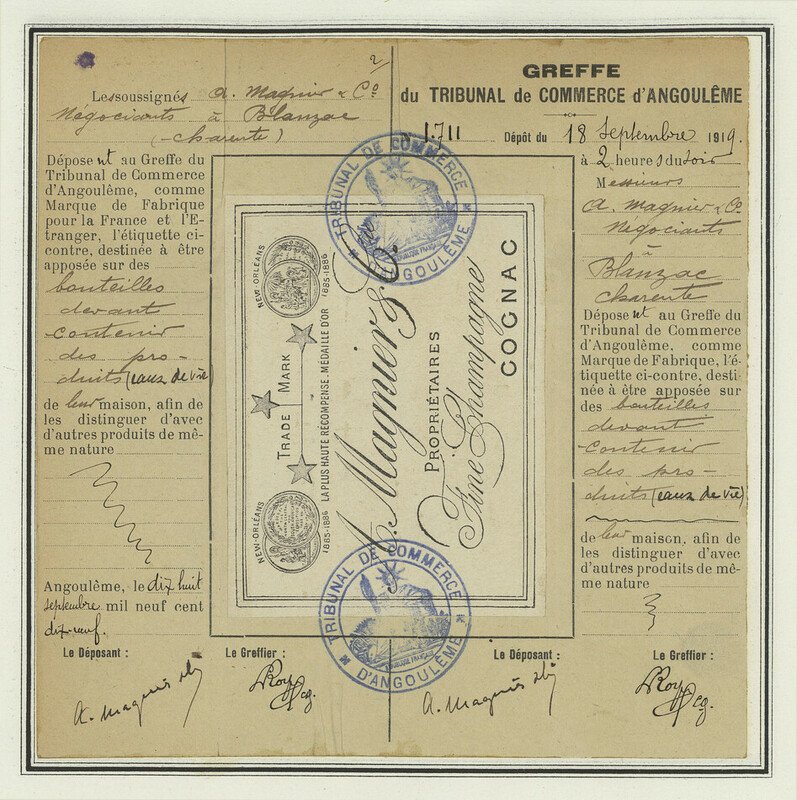 2
Les soussignés A. Magnier & Co
Négociants à Blanzac
(Charente)
Déposent au Greffe du
Tribunal de Commerce
d'Angoulême, comme
Marque de Fabrique
pour la France et l'E-
tranger, l'étiquette ci-
contre, destinée à être
apposée sur des
bouteilles
devant
contenir
des pro-
duits (eaux de vie)
de leur maison, afin de
les distinguer d'avec
d'autres produits de mê-
me nature
Angoulême, le dix huit
septembre mil neuf cent
dix-neuf.
Le Déposant :
Le Greffier :
A. Magnier
Roy
TRIBUNAL DE COMMERCE
D'ANGOULÊME
RÉPUBLIQUE FRANÇAISE
NEW-ORLÉANS
1885-1886
TRADE MARK
NEW-ORLÉANS
1885-1886
LA PLUS HAUTE RÉCOMPENSE. MÉDAILLE D'OR
A. Magnier & Co.
PROPRIÉTAIRES
Fine Champagne
COGNAC
TRIBUNAL DE COMMERCE
D'ANGOULÊME
RÉPUBLIQUE FRANÇAISE
GREFFE
du TRIBUNAL de COMMERCE d'ANGOULÊME
1.711 Dépôt du 18 Septembre 1919.
à 2 heures du soir
Messieurs
A. Magnier & Co
Négociants
à
Blanzac
Charente
Déposent au Greffe du
Tribunal de Commerce
d'Angoulême, comme
Marque de Fabrique, l'é-
tiquette ci-contre, desti
née à être apposée sur
des bouteilles
devant
contenir
des pro-
duits (eaux de vie)
de leur maison, afin de
les distinguer d'avec
d'autres produits de mê-
me nature
Le Déposant :
Le Greffier :
A. Magnier
Roy